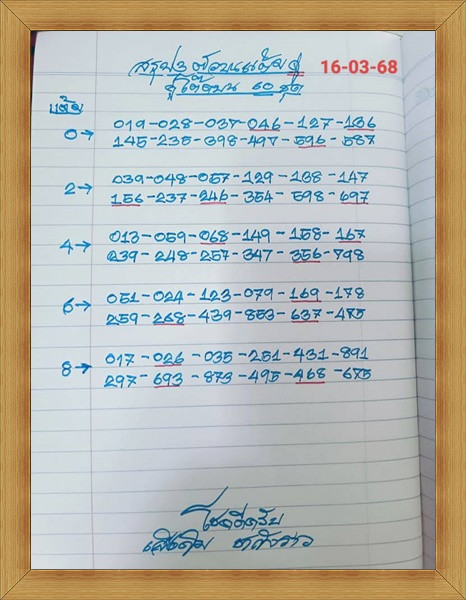 สรุป3ตัวบนแต้มคู่ 16-03-68
รูดโต๊ดบน 60 ชุด
แต้ม
0→ 019-028-037-046-127-136
145-235-398-497-596-587
2→ 039-048-057-129-138-147
156-237-246-354-598-697
4→ 013-059-068-149-158-167
239-248-257-347-356-798
6→ 051-024-123-079-169-178
259-268-439-853-637-475
8→ 017-026-035-251-431-891
297-693-873-495-468-675
โชคดีครับ